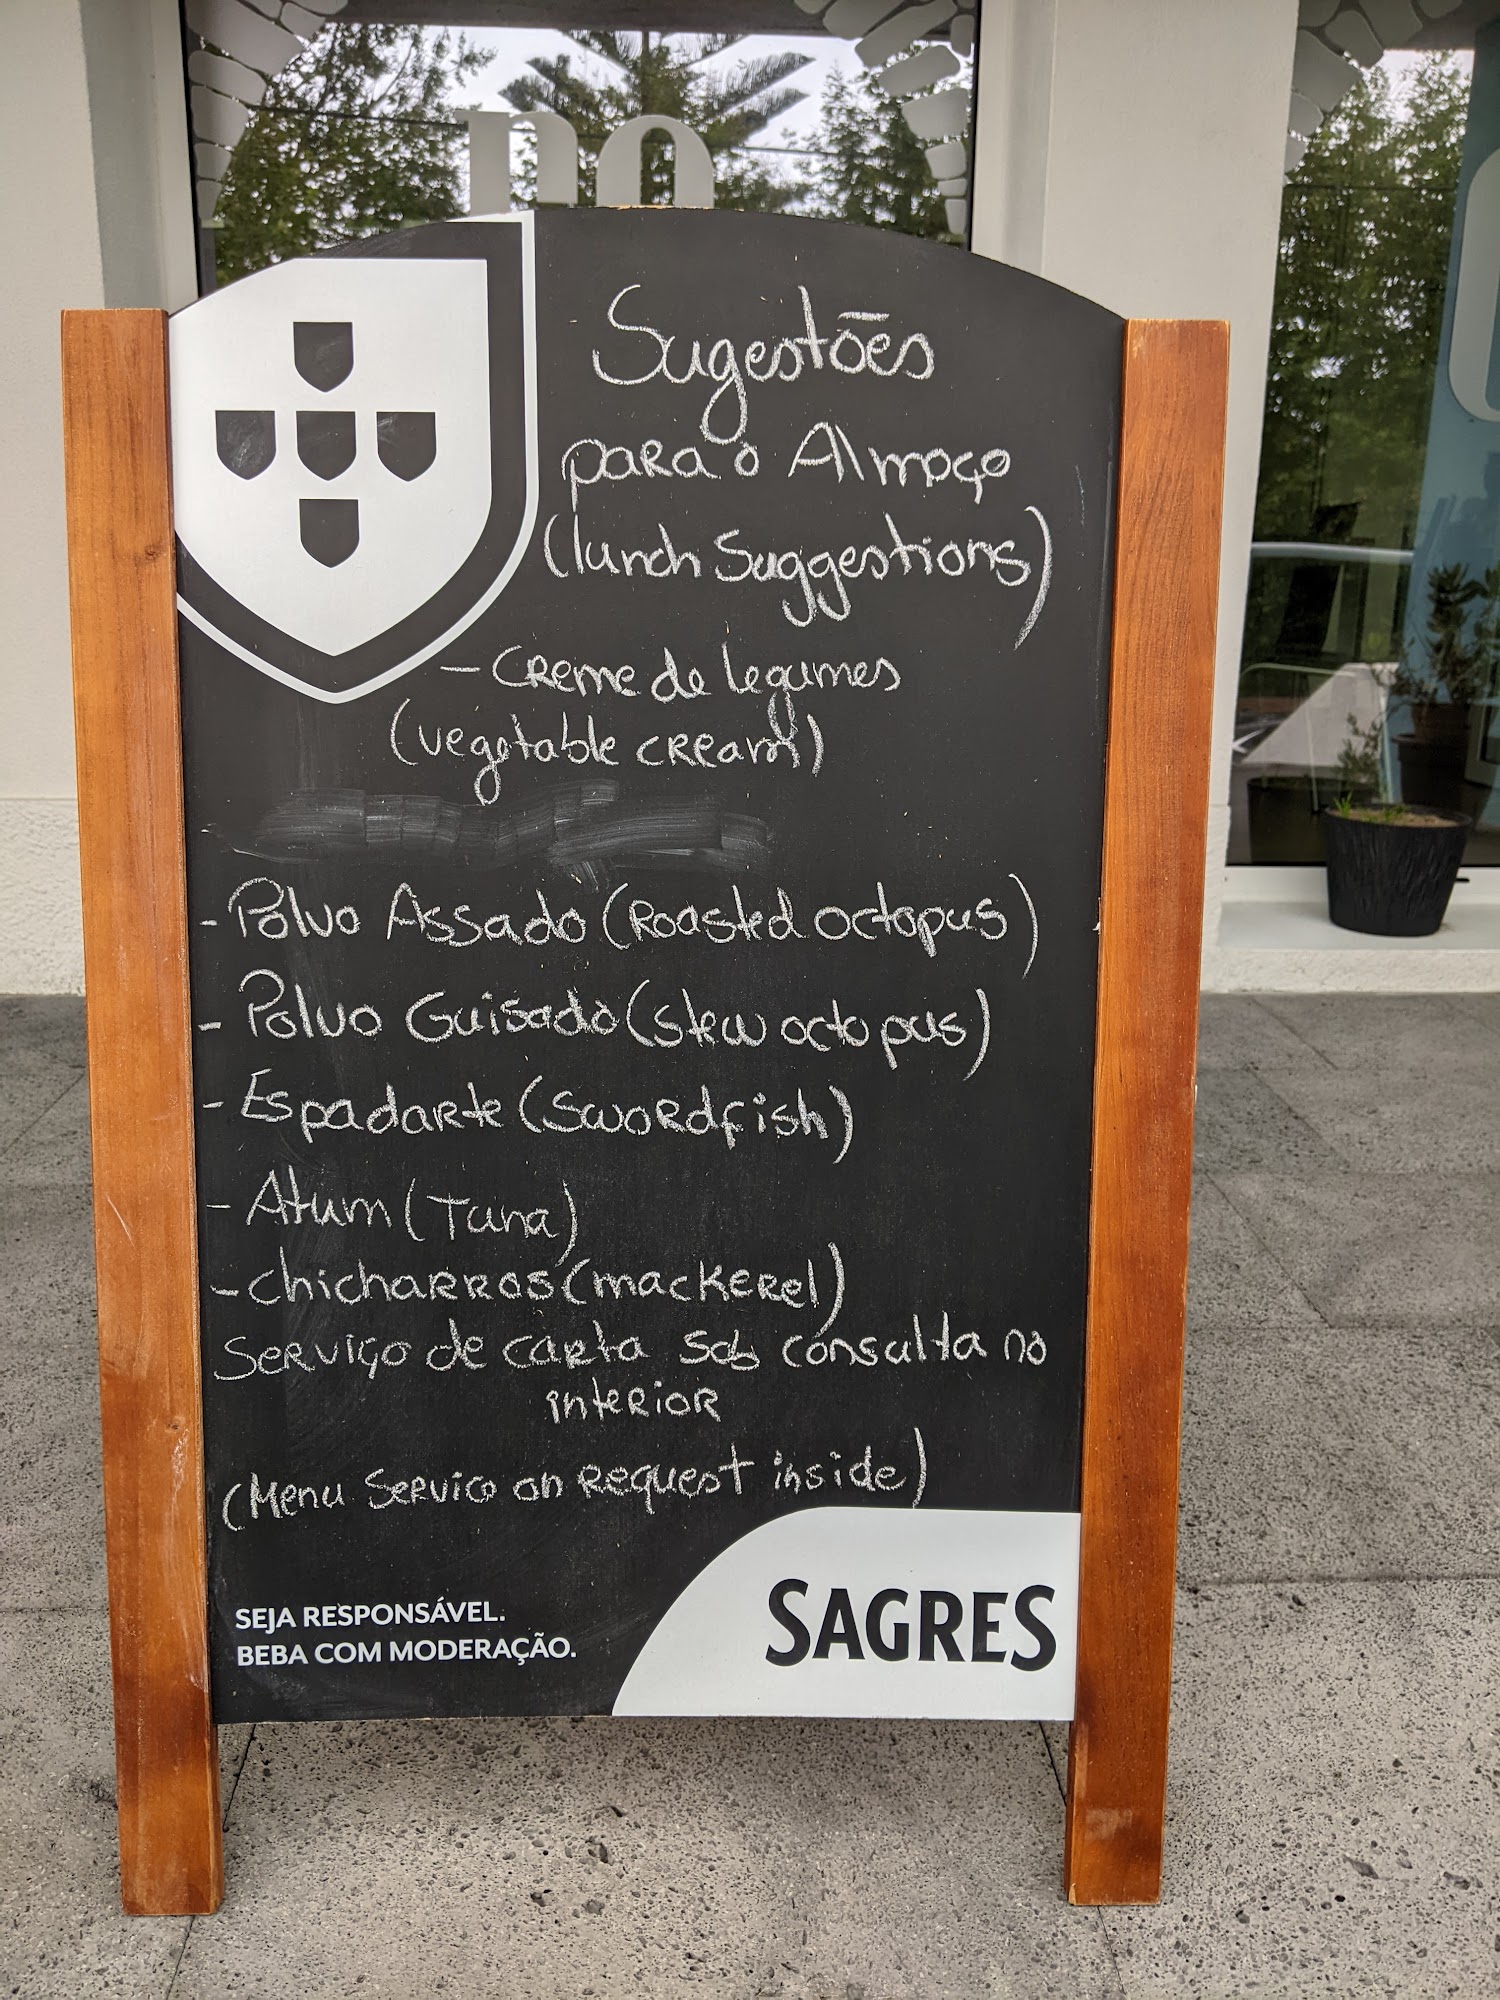 no
Sugestões
para o Almoço
(lunch Suggestions)
- Creme de legumes
(vegetable cream)
- Polvo Assado (Roasted octopus)
- Polvo Guisado (stew octopus)
- Espadarte (swordfish)
- Atum (Tuna)
- Chicharros (mackerel)
Serviço de carta sob consulta no
interior
(Menu Service on Request inside)
SEJA RESPONSÁVEL.
BEBA COM MODERAÇÃO.
SAGRES